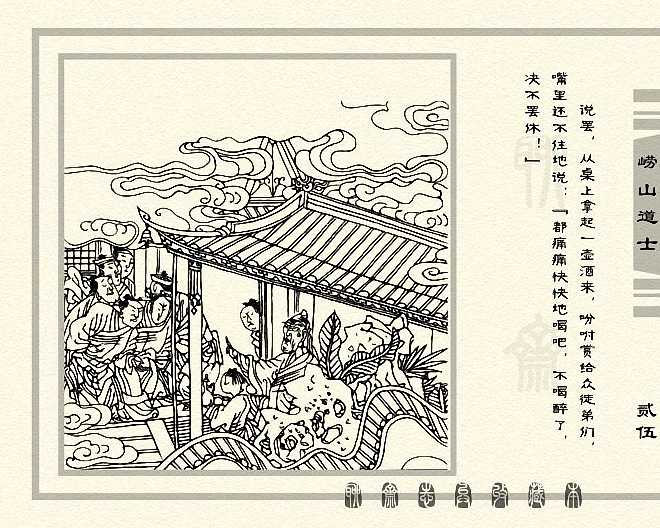 崂山道士
贰伍
说罢，从桌上拿起一壶酒来，吩咐赏给众徒弟们，
嘴里还不住地说：“都痛痛快快地喝吧，不喝醉了，
决不罢休！”